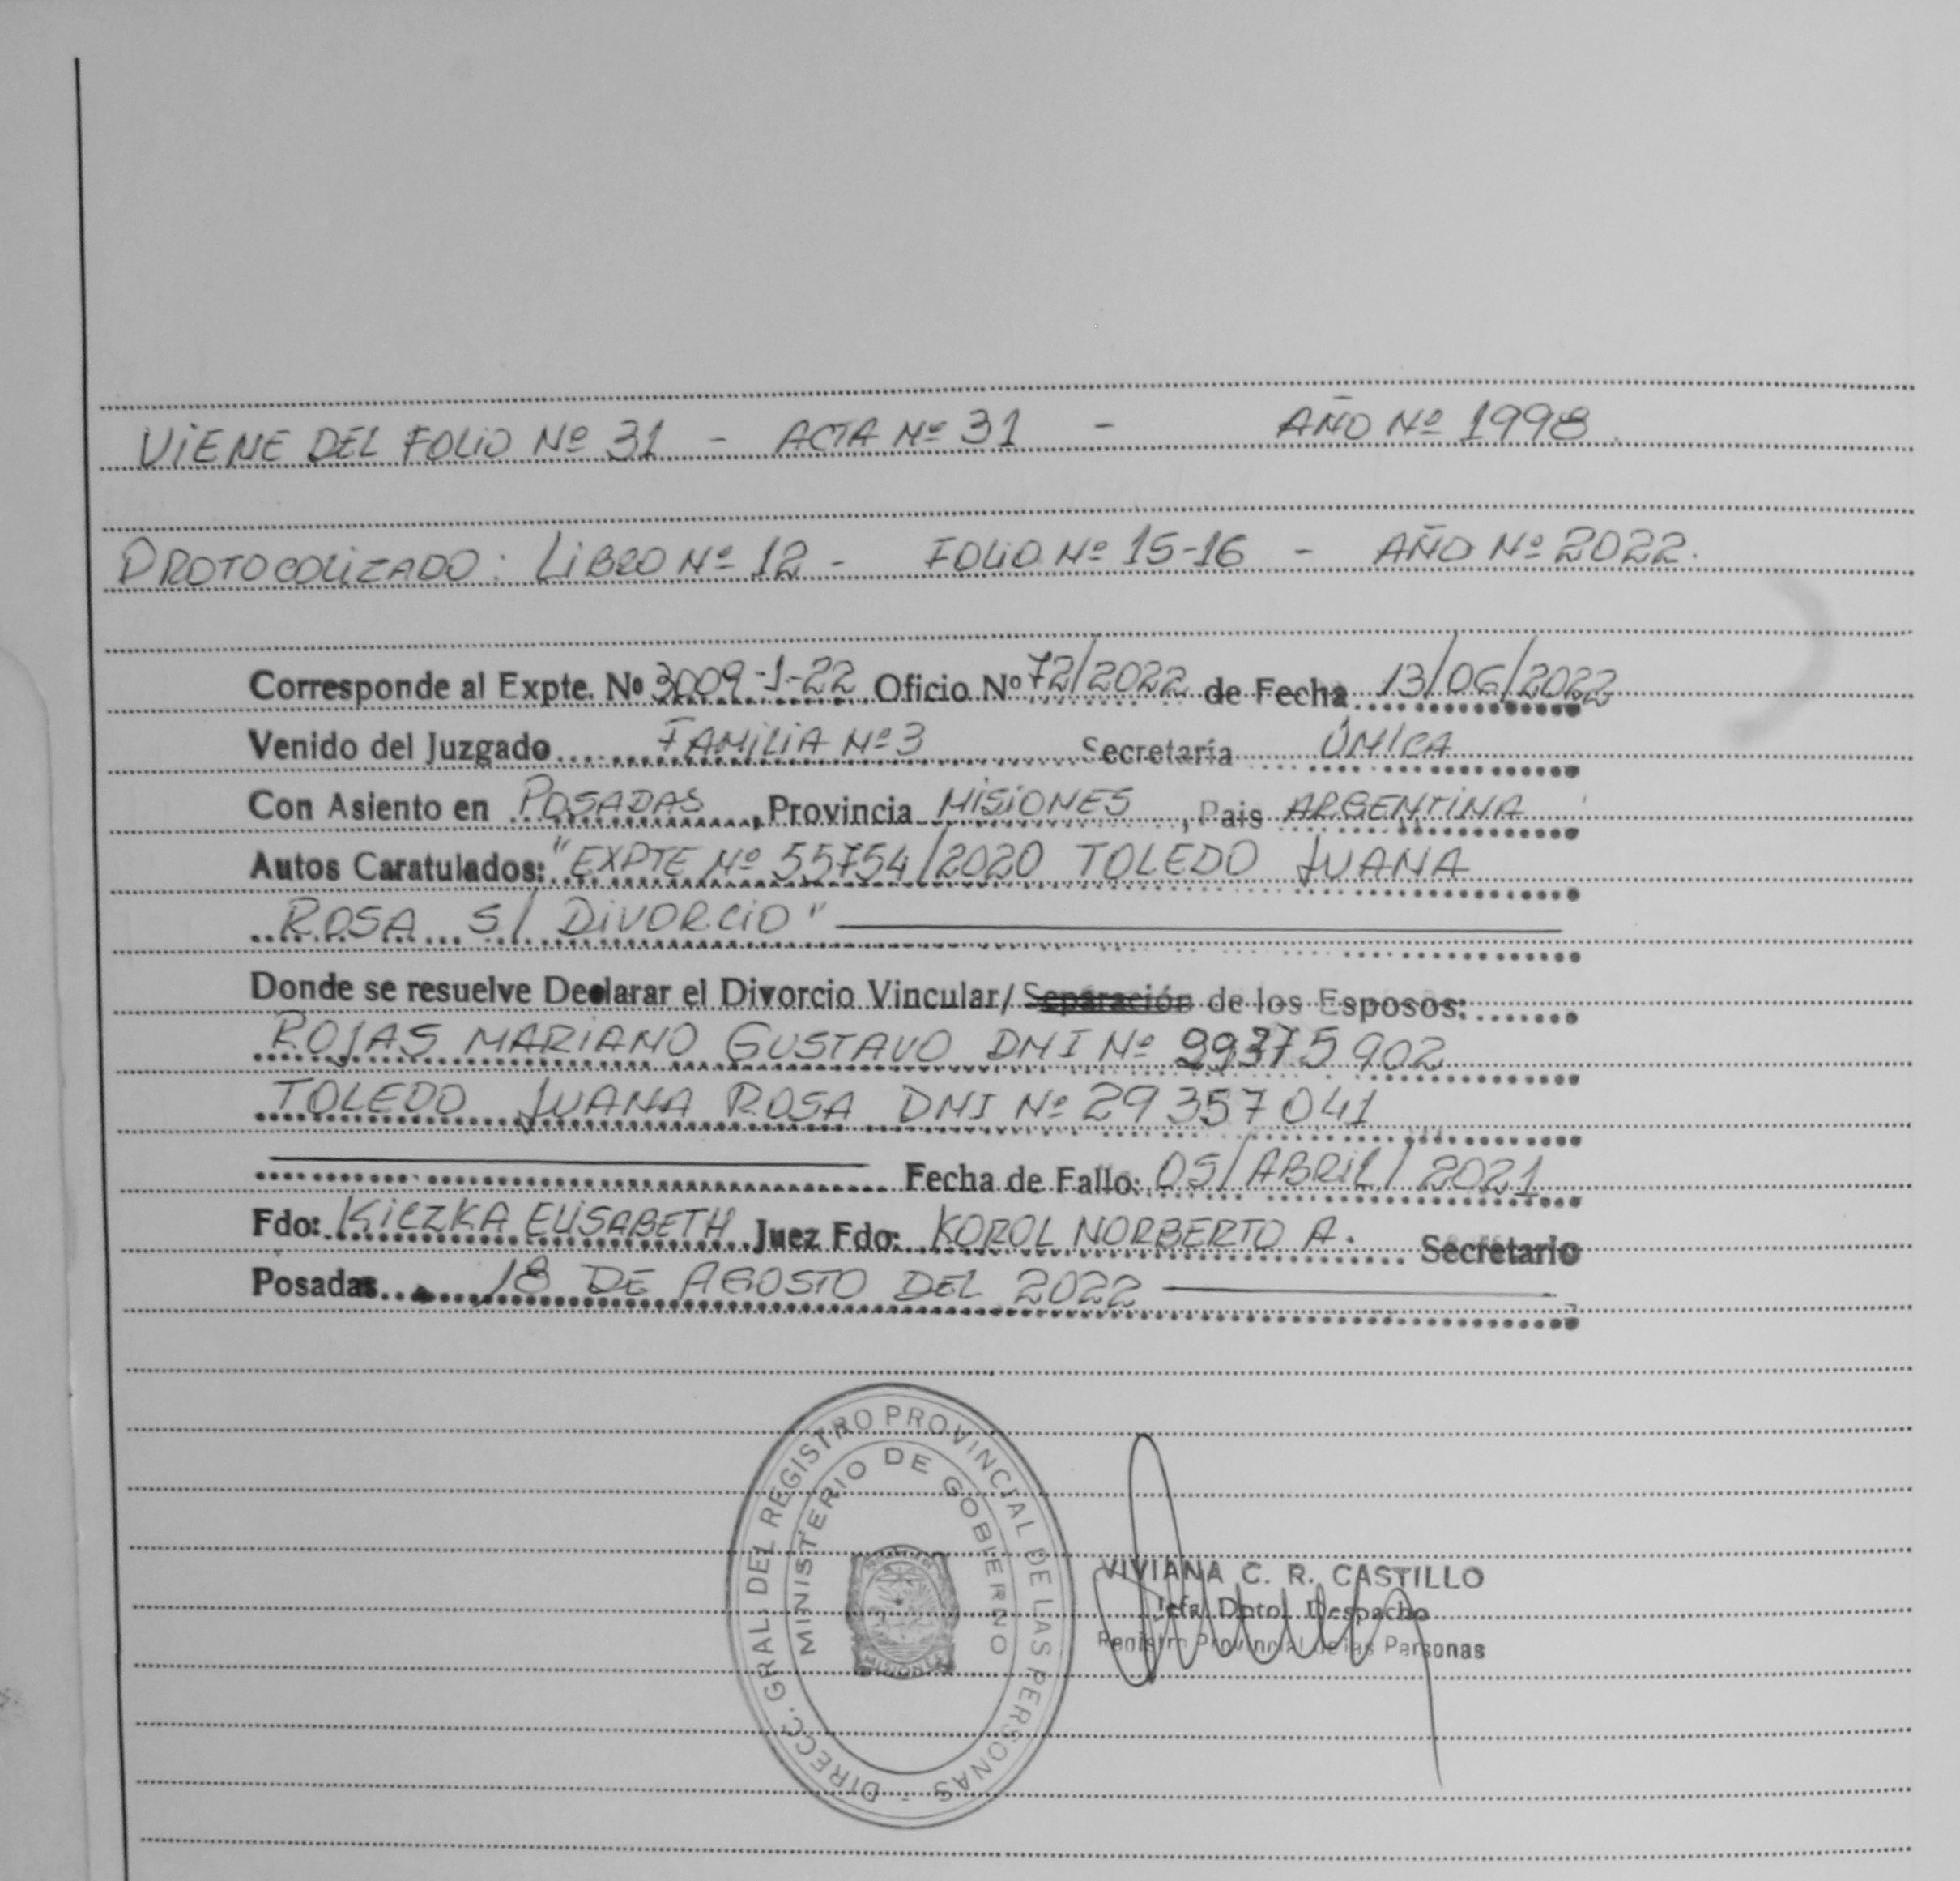 VIENE DEL FOLIO Nº 31 - ACTA Nº 31 - AÑO Nº 1998.
PROTOCOLIZADO: LIBRO Nº 12 - FOLIO Nº 15-16 - AÑO Nº 2022.
Corresponde al Expte. Nº 3009-1-22 Oficio Nº 72/2022 de Fecha 13/06/2022
Venido del Juzgado FAMILIA Nº 3 Secretaría ÚNICA
Con Asiento en POSADAS, Provincia MISIONES, Pais ARGENTINA
Autos Caratulados: "EXPTE Nº 55754/2020 TOLEDO JUANA
ROSA S/ DIVORCIO"
Donde se resuelve Declarar el Divorcio Vincular/ Separación de los Esposos:
ROJAS MARIANO GUSTAVO DNI Nº 902
TOLEDO JUANA ROSA DNI Nº 29357041
Fecha de Fallo: 05/ABRIL/2021
Fdo: KICZKA ELISABETH Juez Fdo: KOROL NORBERTO A. Secretario
Posadas 18 DE AGOSTO DEL 2022
DIRECC. GRAL. DEL REGISTRO PROVINCIAL DE LAS PERSONAS -
MINISTERIO DE GOBIERNO
MISIONES
VIVIANA C. R. CASTILLO
Jefa Dpto. Despacho
Registro Provincial de las Personas